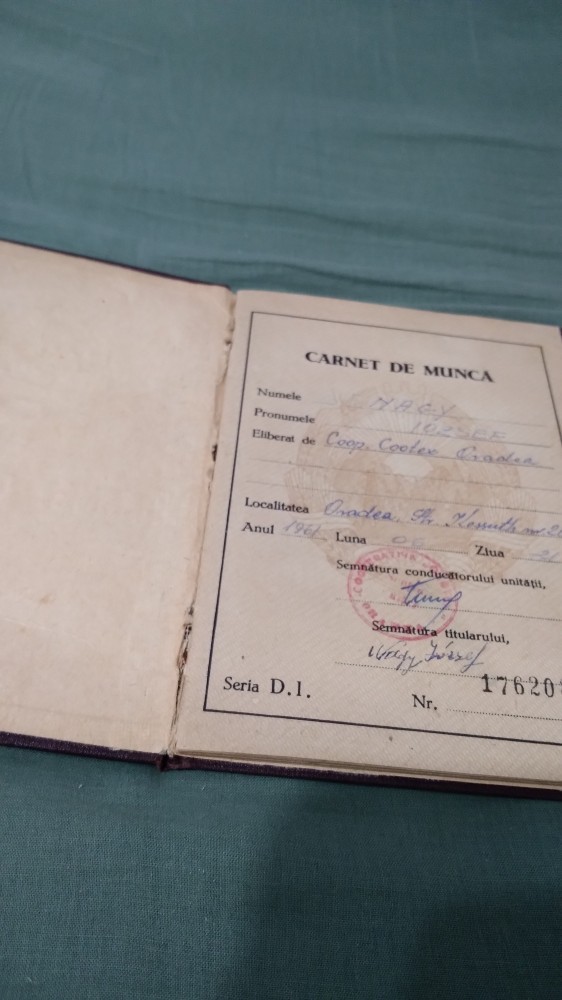 CARNET DE MUNCĂ
Numele NAGY
Pronumele IOZSEF
Eliberat de Coop. Cootex Oradea
Localitatea Oradea, Str. Kossuth nr. 20
Anul 1961 Luna 06 Ziua 21
Semnătura conducătorului unităţii,
Semnătura titularului,
Nagy József
Seria D.1.
Nr. 17620